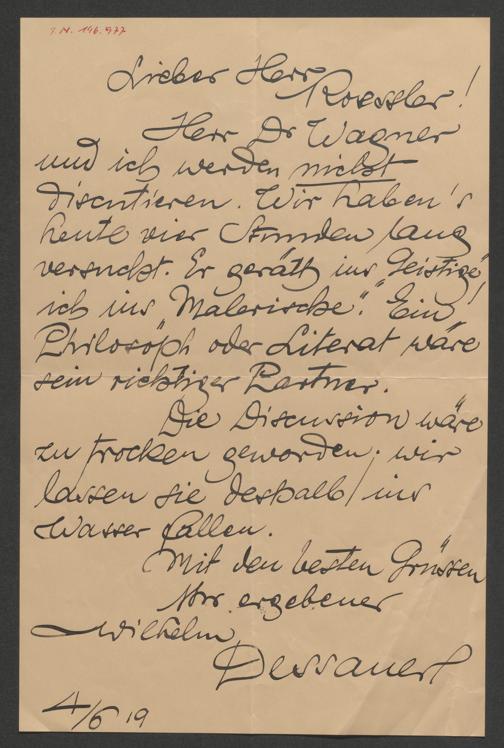 I.N. 146.977
Lieber Herr
Roessler!
Herr Dr Wagner
und ich werden nicht
discutieren. Wir haben's
heute vier Stunden lang
versucht. Er gerätt ins "Geistige"
ich ins "Malerische". Ein
Philosoph oder Literat wäre
sein richtiger Partner.
Die Discussion wäre
zu trocken geworden; wir
lassen sie deshalb ins
Wasser fallen.
Mit den besten Grüssen
Ihr ergebener
Wilhelm
Dessauer
4/6 19